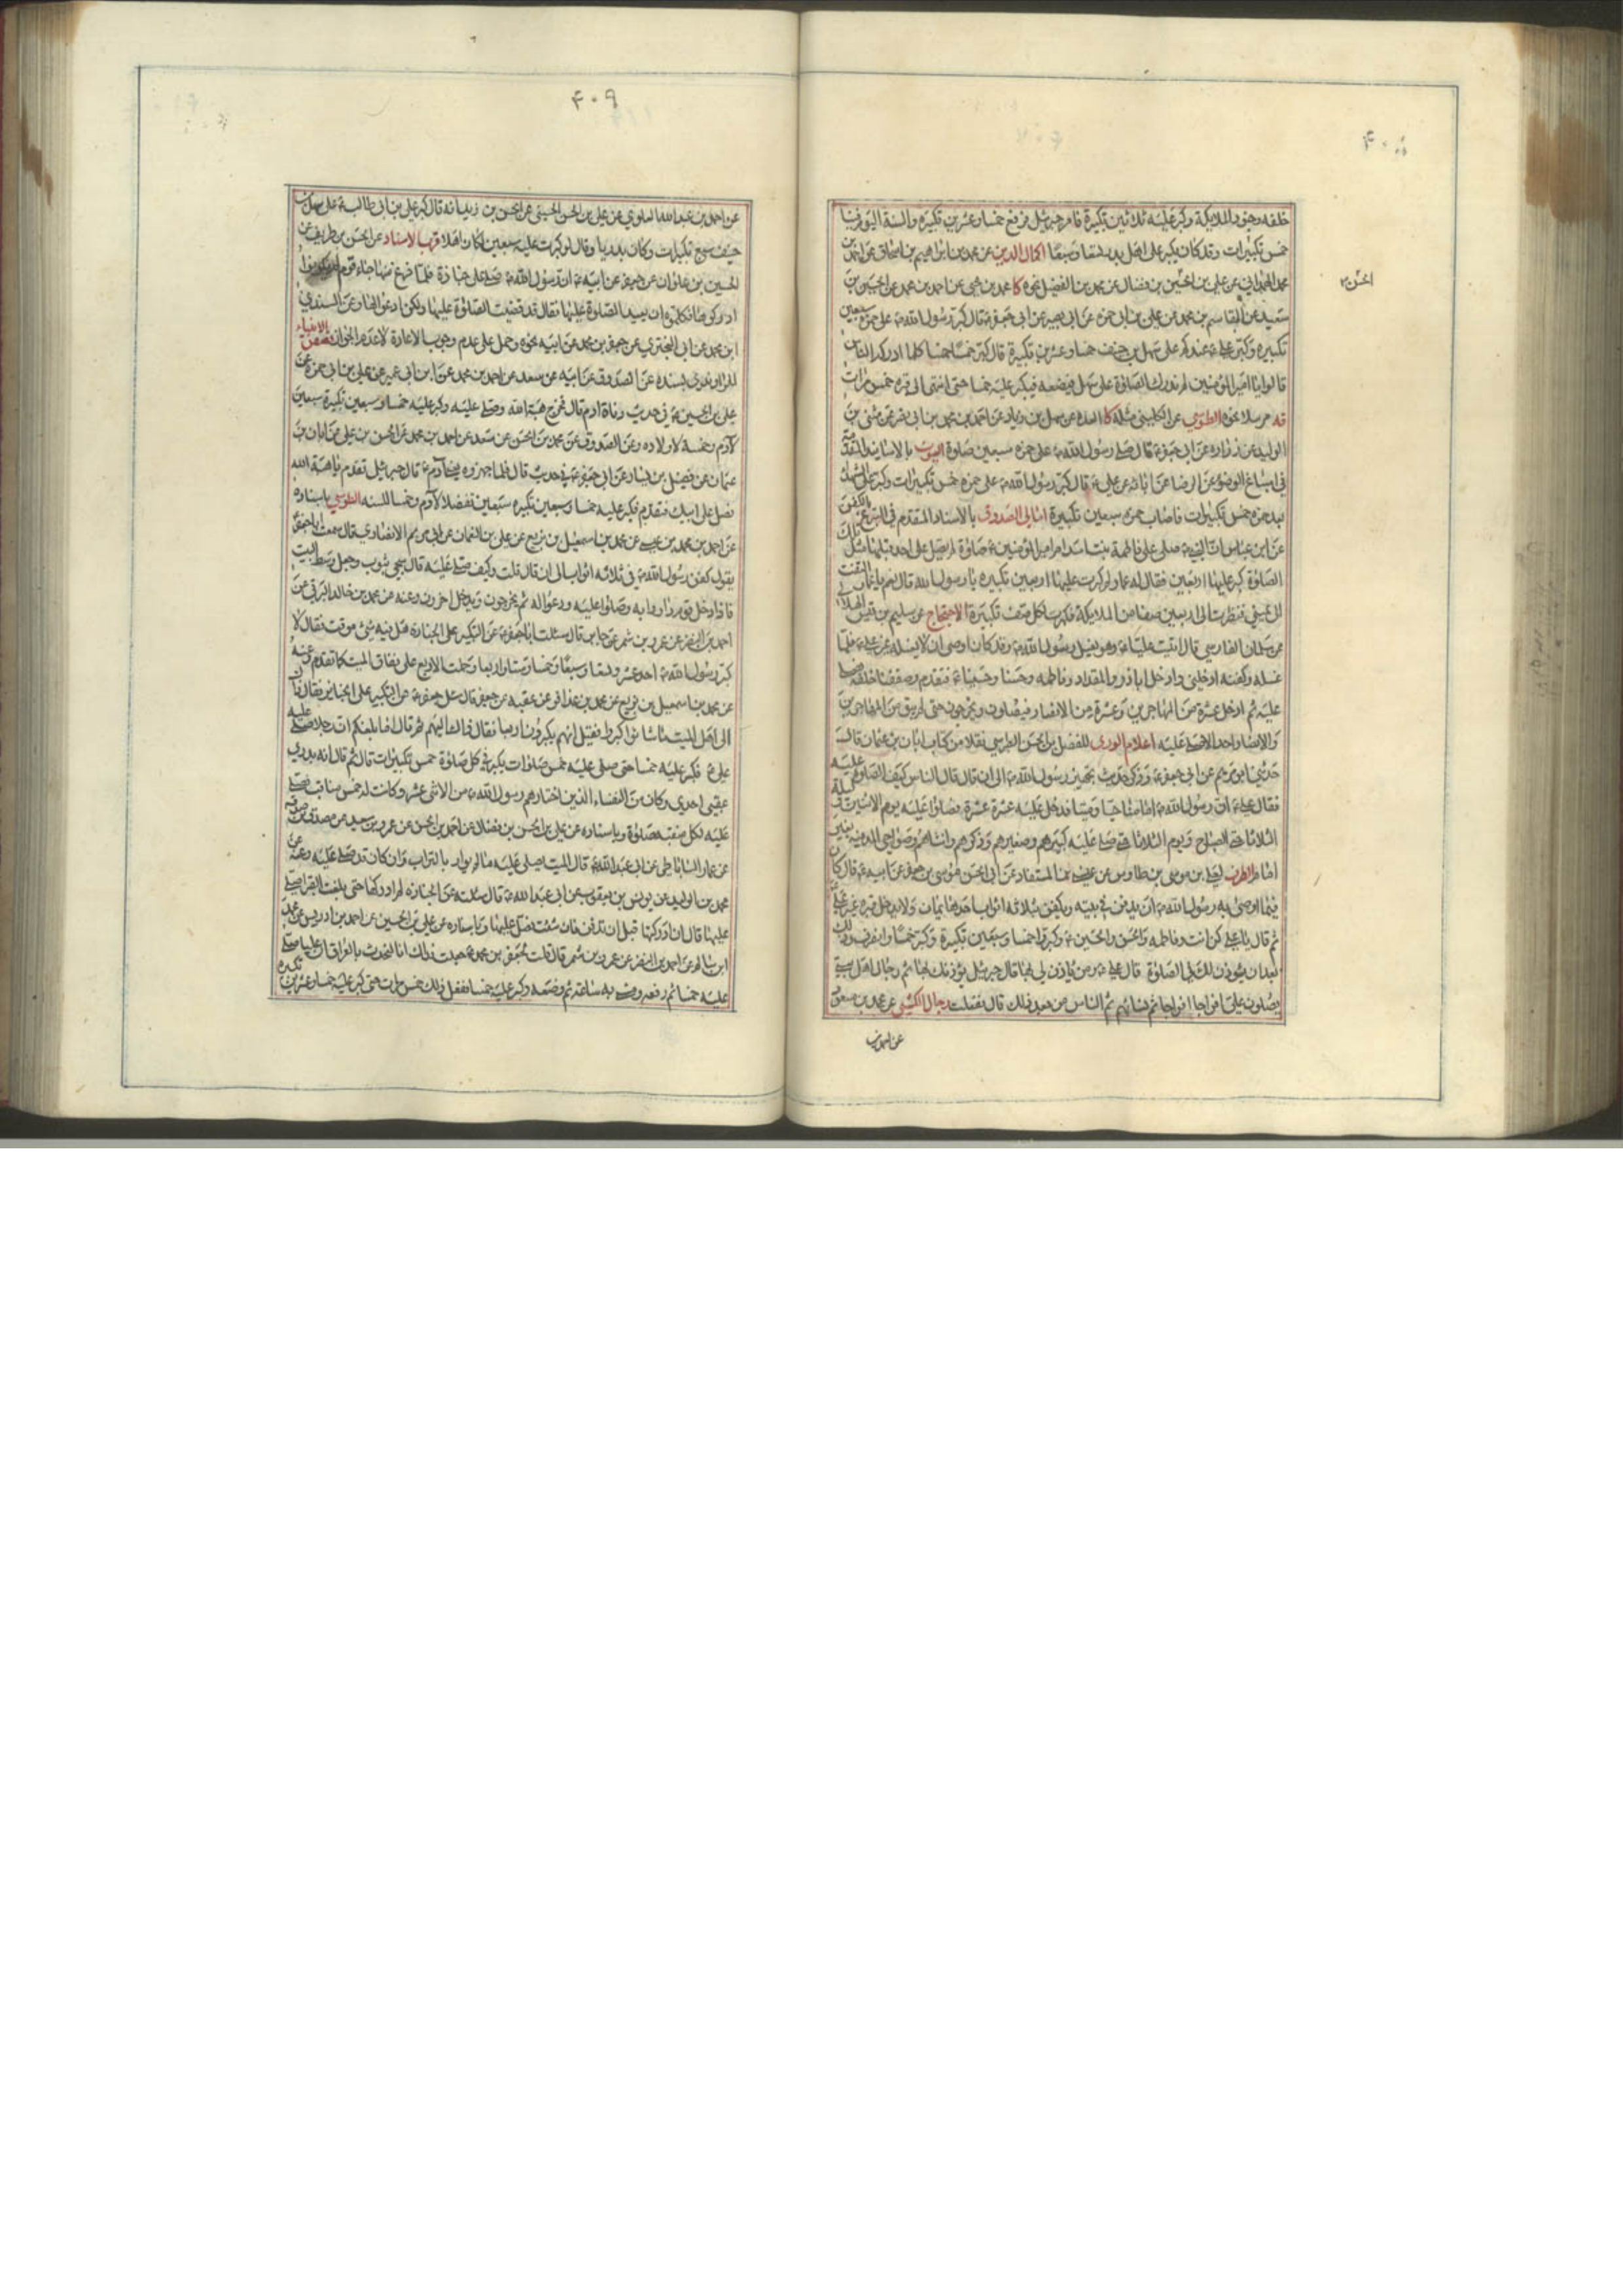 ۴۰۸
خلفه وجنود الملايكة وكبر عليه ثلاثين تكبيرة فامر جبرئيل فرفع خمسا وعشرين تكبيرة والسنة اليوم فينا
خمس تكبيرات وقد كان يكبر على اهل بدر تسعا وسبعا اكمال الدين عن محمد بن ابراهيم بن اسحاق عن احمد بن
محمد الهمداني عن علي بن الحسن بن فضال عن محمد بن الفضيل نحوه كا محمد بن يحيى عن احمد بن محمد عن الحسين بن
الحسن
سعيد عن القاسم بن محمد عن علي بن ابي حمزه عن ابي بصير عن ابي جعفر ع قال كبر رسول الله ص على حمزه سبعين
تكبيره وكبر علي ع عندكم على سهل بن حنيف خمسا وعشرين تكبيرة قال كبر خمسا خمسا كلما ادركه الناس
قالوا يا امير المؤمنين لم ندرك الصلوة على سهل فيضعه فيكبر عليه خمسا حتى انتهى الى قبره خمس مرات
قه مرسلا نحوه الطوسي عن الكليني مثله كا العده عن سهل بن زياد عن احمد بن محمد بن ابي نصر عن مثنى بن
الوليد عن زراره عن ابي جعفر ع قال صلى رسول الله ص على حمزه سبعين صلوة العيون بالاسانيد المتقدمة
في اسباغ الوضوء عن الرضا عن ابائه عن علي ع قال كبر رسول الله ص على حمزه خمس تكبيرات وكبر على الشهداء
بعد حمزه خمس تكبيرات فاصاب حمزه سبعين تكبيرة امالي الصدوق بالاسناد المتقدم في التبرع بالكفن
عن ابن عباس ان النبي ص صلى على فاطمة بنت اسد ام امير المؤمنين ع صلوة لم يصل على احد قبلها مثل تلك
الصلوة كبر عليها اربعين فقال له عمار لم كبرت عليها اربعين تكبيره يا رسول الله قال نعم يا عمار التفت
الى يميني فنظرت الى اربعين صفا من الملايكة فكبرت لكل صف تكبيرة الاحتجاج عن سليم بن قيس الهلالي
عن سلمان الفارسي قال اتيت عليا ع وهو يغسل رسول الله ص وقد كان اوصى ان لا يغسله غير علي ع فلما
غسله وكفنه ادخلني وادخل اباذر والمقداد وفاطمه وحسنا وحسينا ع فتقدم وصففنا خلفه فصلى
عليه ثم ادخل عشرة من المهاجرين وعشرة من الانصار فيصلون ويخرجون حتى لم يبق من المهاجرين
والانصار احد الا صلى عليه اعلام الورى للفضل بن الحسن الطبرسي نقلا من كتاب ابان بن عثمان قال
حدثني ابو مريم عن ابي جعفر ع وذكر حديث تجهيز رسول الله ص الى ان قال قال الناس كيف الصلوة عليه
فقال علي ع ان رسول الله ص امامنا حيا وميتا فدخل عليه عشرة عشرة فصلوا عليه يوم الاثنين وليلة
الثلاثا حتى الصباح ويوم الثلاثا حتى صلى عليه كبيرهم وصغيرهم وذكرهم وانثاهم وضواحي المدينه بغير
امام الطرف لعلي بن موسى بن طاوس عن عيسى بن المستفاد عن ابي الحسن موسى بن جعفر عن ابيه ع قال كان
فيما اوصى به رسول الله ص ان يدفن في بيته ويكفن بثلاثة اثواب احدها يمان ولا يدخل قبره غير علي
ثم قال يا علي كن انت وفاطمه والحسن والحسين ع وكبروا خمسا وسبعين تكبيرة وكبر خمسا وانصرف وذلك
بعد ان يؤذن لك في الصلوة قال علي ع ومن يأذن لي بها قال جبرئيل يؤذنك بها ثم رجال اهل بيتي
يصلون علي افواجا افواجا ثم نساؤهم ثم الناس من بعد ذلك قال ففعلت رجال الكشي عن محمد بن مسعود
عن احمد بن
۴۰۹
عن احمد بن عبدالله العلوي عن علي بن الحسن الحسيني عن الحسن بن زيد انه قال كبر علي بن ابي طالب ع على سهل بن
حنيف سبع تكبيرات وكان بدريا وقال لو كبرت عليه سبعين لكان اهلا قرب الاسناد عن الحسن بن ظريف عن
الحسين بن علوان عن جعفر عن ابيه ع ان رسول الله ص صلى على جنازة فلما فرغ منها جاء قوم لم يكونوا
ادركوها فكلموه ان يعيد الصلوة عليها فقال قد قضيت الصلوة عليها ولكن ادعوا لها وعن السندي
ابن محمد عن ابي البختري عن جعفر بن محمد عن ابيه نحوه وحمل على عدم وجوب الاعادة لا عدم الجواز قصص الانبياء
للراوندي بسنده عن الصدوق عن ابيه عن سعد عن احمد بن محمد عن ابن ابي عمير عن علي بن ابي حمزه عن
علي بن الحسين ع في حديث وفاة ادم قال فخرج هبة الله وصلى عليه وكبر عليه خمسا وسبعين تكبيرة سبعين
لآدم وخمسة لاولاده وعن الصدوق عن محمد بن الحسن عن سعد عن احمد بن محمد عن الحسن بن علي عن ابان بن
عثمان عن فضيل بن يسار عن ابي جعفر ع في حديث قال فلما جهزوه يعني آدم ع قال جبرئيل تقدم يا هبة الله
فصل على ابيك فتقدم فكبر عليه خمسا وسبعين تكبيره سبعين تفضلا لآدم وخمسا للسنه الطوسي باسناده
عن احمد بن محمد بن عيسى عن محمد بن اسمعيل بن بزيع عن علي بن النعمان عن ابي مريم الانصاري قال سمعت ابا جعفر
يقول كفن رسول الله ص في ثلاثه اثواب الى ان قال قلت وكيف صلي عليه قال سجي بثوب وجعل وسط البيت
فاذا دخل قوم داروا به وصلوا عليه ودعوا له ثم يخرجون ويدخل اخرون وعنه عن محمد بن خالد البرقي عن
احمد بن النضر عن عمرو بن شمر عن جابر قال سئلت ابا جعفر ع عن التكبير على الجنازه هل فيه شيئ موقت فقال لا
كبر رسول الله ص احد عشر وتسعا وسبعا وخمسا وستا واربعا وحملت الاربع على نفاق الميت كما تقدم وعنه
عن محمد بن اسمعيل بن بزيع عن محمد بن عذافر عن عقبه عن جعفر قال سئل جعفر ع عن التكبير على الجنايز فقال ذاك
الى اهل الميت ما شاؤا كبروا فقيل انهم يكبرون اربعا فقال ذاك اليهم ثم قال اما بلغكم ان رجلا صلى عليه
علي ع فكبر عليه خمسا حتى صلى عليه خمس صلوات يكبر في كل صلوة خمس تكبيرات قال ثم قال انه بدري
عقبي احدي وكان من النقباء الذين اختارهم رسول الله ص من الاثنى عشر وكانت له خمس مناقب فصلى
عليه لكل منقبه صلوة وباسناده عن علي بن الحسن بن فضال عن احمد بن الحسن عن عمرو بن سعيد عن مصدق بن صدقه
عن عمار الساباطي عن ابي عبدالله ع قال الميت يصلى عليه ما لم يوار بالتراب وان كان قد صلي عليه وعنه عن
محمد بن الوليد عن يونس بن يعقوب عن ابي عبدالله ع قال سئلته عن الجنازه لم ادركها حتى بلغت القبر اصلى
عليها قال ان ادركتها قبل ان تدفن فان شئت فصل عليها وباسناده عن علي بن الحسين عن احمد بن ادريس عن محمد
ابن سالم عن احمد بن النضر عن عمرو بن شمر قال قلت لجعفر بن محمد ع جعلت فداك انا نتحدث بالعراق ان عليا صلى
عليه خمسا ثم رفعه ومشى به ساعة ثم وضعه وكبر عليه خمسا ففعل ذلك خمس مرات حتى كبر عليه خمسا وعشرين تكبيره